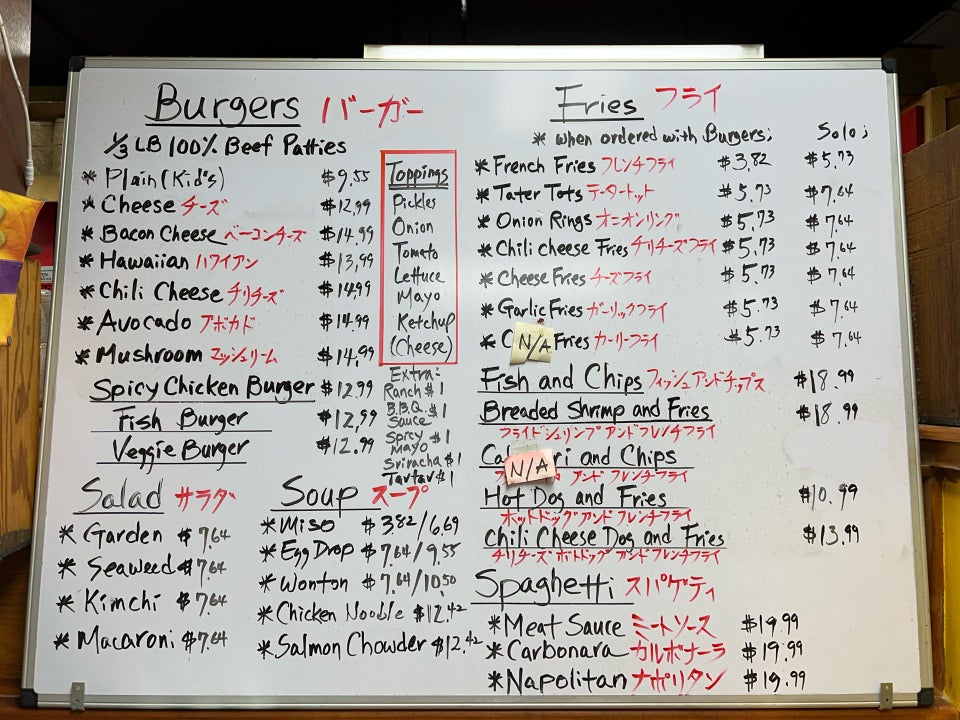 Burgers バーガー
1/3 LB 100% Beef Patties
* Plain (Kid's) $9.55
* Cheese チーズ $12.99
* Bacon Cheese ベーコンチーズ $14.99
* Hawaiian ハワイアン $13.99
* Chili Cheese チリチーズ $14.99
* Avocado アボカド $14.99
* Mushroom マッシュリーム $14.99
Spicy Chicken Burger $12.99
Fish Burger $12.99
Veggie Burger $12.99
Toppings
Pickles
Onion
Tomato
Lettuce
Mayo
Ketchup
(Cheese)
Extra:
Ranch $1
B.B.Q. $1
Sauce
Spicy $1
Mayo
Sriracha $1
Tartar $1
Salad サラダ
* Garden $7.64
* Seaweed $7.64
* Kimchi $7.64
* Macaroni $7.64
Soup スープ
* Miso $3.82/6.69
* Egg Drop $7.64/9.55
* Wonton $7.64/10.50
* Chicken Noodle $12.42
* Salmon Chowder $12.42
Fries フライ
* When ordered with Burgers; Solo;
* French Fries フレンチフライ $3.82 $5.73
* Tater Tots テータートット $5.73 $7.64
* Onion Rings オニオンリング $5.73 $7.64
* Chili cheese Fries チリチーズフライ $5.73 $7.64
* Cheese Fries チーズフライ $5.73 $7.64
* Garlic Fries ガーリックフライ $5.73 $7.64
* C N/A Fries カーリーフライ $5.73 $7.64
Fish and Chips フィッシュアンドチップス $18.99
Breaded Shrimp and Fries $18.99
フライドシュリンプアンドフレンチフライ
Ca N/A ri and Chips
アンド フレンチフライ
Hot Dog and Fries $10.99
ホットドッグアンドフレンチフライ
Chili Cheese Dog and Fries $13.99
チリチーズ ホトドッグ アンドフレンチフライ
Spaghetti スパゲティ
* Meat Sauce ミートソース $19.99
* Carbonara カルボナーラ $19.99
* Napolitan ナポリタン $19.99